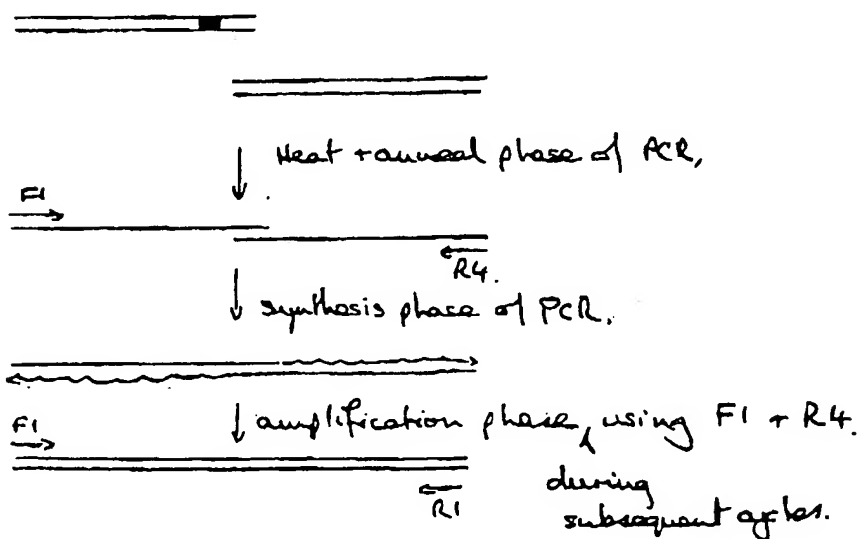 Heat + anneal phase of PCR,
F1
R4.
synthesis phase of PCR.
F1
amplification phase, using F1 + R4.
during
subsequent cycles.
R1